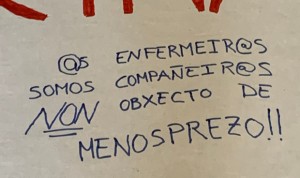 @S ENFERMEIR@S
SOMOS COMPAÑEIR@S
NON OBXECTO DE
MENOSPREZO!!